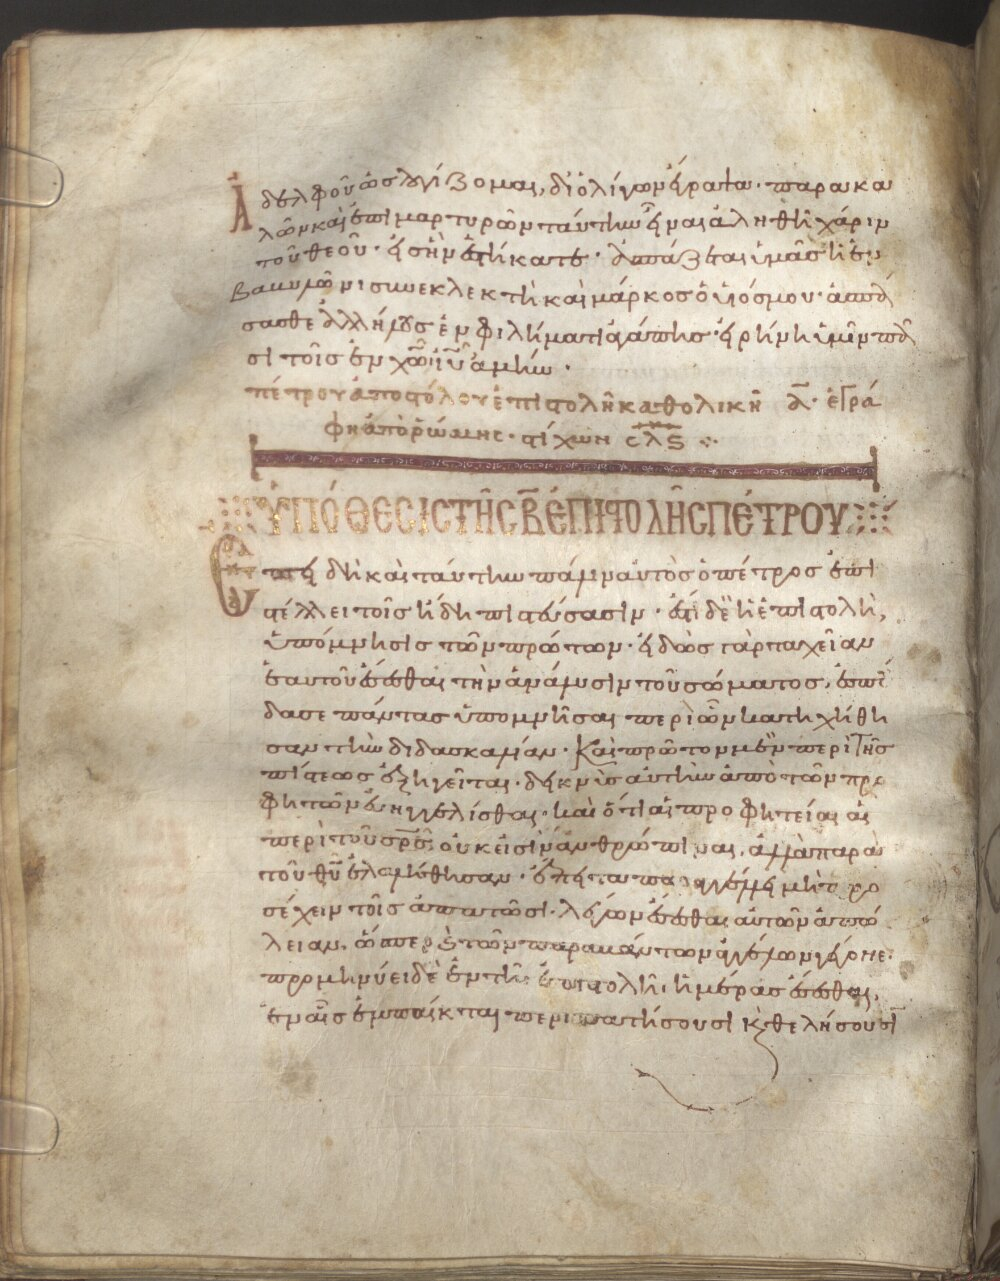 Ἀδελφοῦ ὡς λογίζομαι, δι ὀλίγων ἔγραψα · παρακα
λῶν καὶ ἐπιμαρτυρῶν ταύτην εἶναι ἀληθῆ χάριν
τοῦ θεοῦ · εἰς ἣν ἑστήκατε · ἀσπάζεται ὑμᾶς ἡ ἐν
βαβυλῶνι συνεκλεκτὴ καὶ μάρκος ὁ υἱός μου · ἀσπά
σασθε ἀλλήλους ἐν φιλήματι ἀγάπης · εἰρήνη ὑμῖν πᾶ
σι τοῖς ἐν χῶ ιῦ ἀμήν ·
πέτρου ἀποστόλου ἐπιστολὴ καθολικὴ ᾱ · ἐγρά
φη ἀπὸ ῥώμης · στίχων σλϛ
ὙΠΌΘΕΣΙΣ ΤΗ͂Σ Β̄ ἘΠΙΣΤΟΛΗ͂Σ ΠΈΤΡΟΥ
Ἐπειδὴ καὶ ταύτην πάλιν αὐτὸς ὁ πέτρος ἐπι
στέλλει τοῖς ἤδη πιστεύσασιν · ἔστι δὲ ἡ ἐπιστολὴ,
ὑπόμνησις τῶν πρώτων · εἰδὼς γὰρ ταχεῖαν
ἑαυτοῦ ἔσεσθαι τὴν ἀνάλυσιν τοῦ σώματος, ἐσπού
δασε πάντας ὑπομνῆσαι περὶ ὧν κατηχήθη
σαν τὴν διδασκαλίαν · Καὶ πρῶτον μὲν περὶ τῆς
πίστεως ἐξηγεῖται · δεικνὺς αὐτὴν ἀπὸ τῶν προ
φητῶν εὐηγγελίσθαι · καὶ ὅτι αἱ προφητείαι αἱ
περὶ τοῦ σρ̄ς οὐκ εἰσὶν ἀνθρώπιναι, ἀλλὰ παρὰ
τοῦ θῦ ἐλαλήθησαν · ἔπειτα παραγγέλλει μὴ προ
σέχειν τοῖς ἀπατῶσι · λέγων ἔσεσθαι αὐτῶν ἀπώ
λειαν, ὥσπερ καὶ τῶν παραβάντων ἀγγέλων γέγονε ·
προμηνύει δὲ ἐν τῆ ἐπιστολῆ, ἡμέρας ἔσεσθαι,
ἐν αἷς ἐμπαῖκται περιπατήσουσι κ̀ θελήσουσι